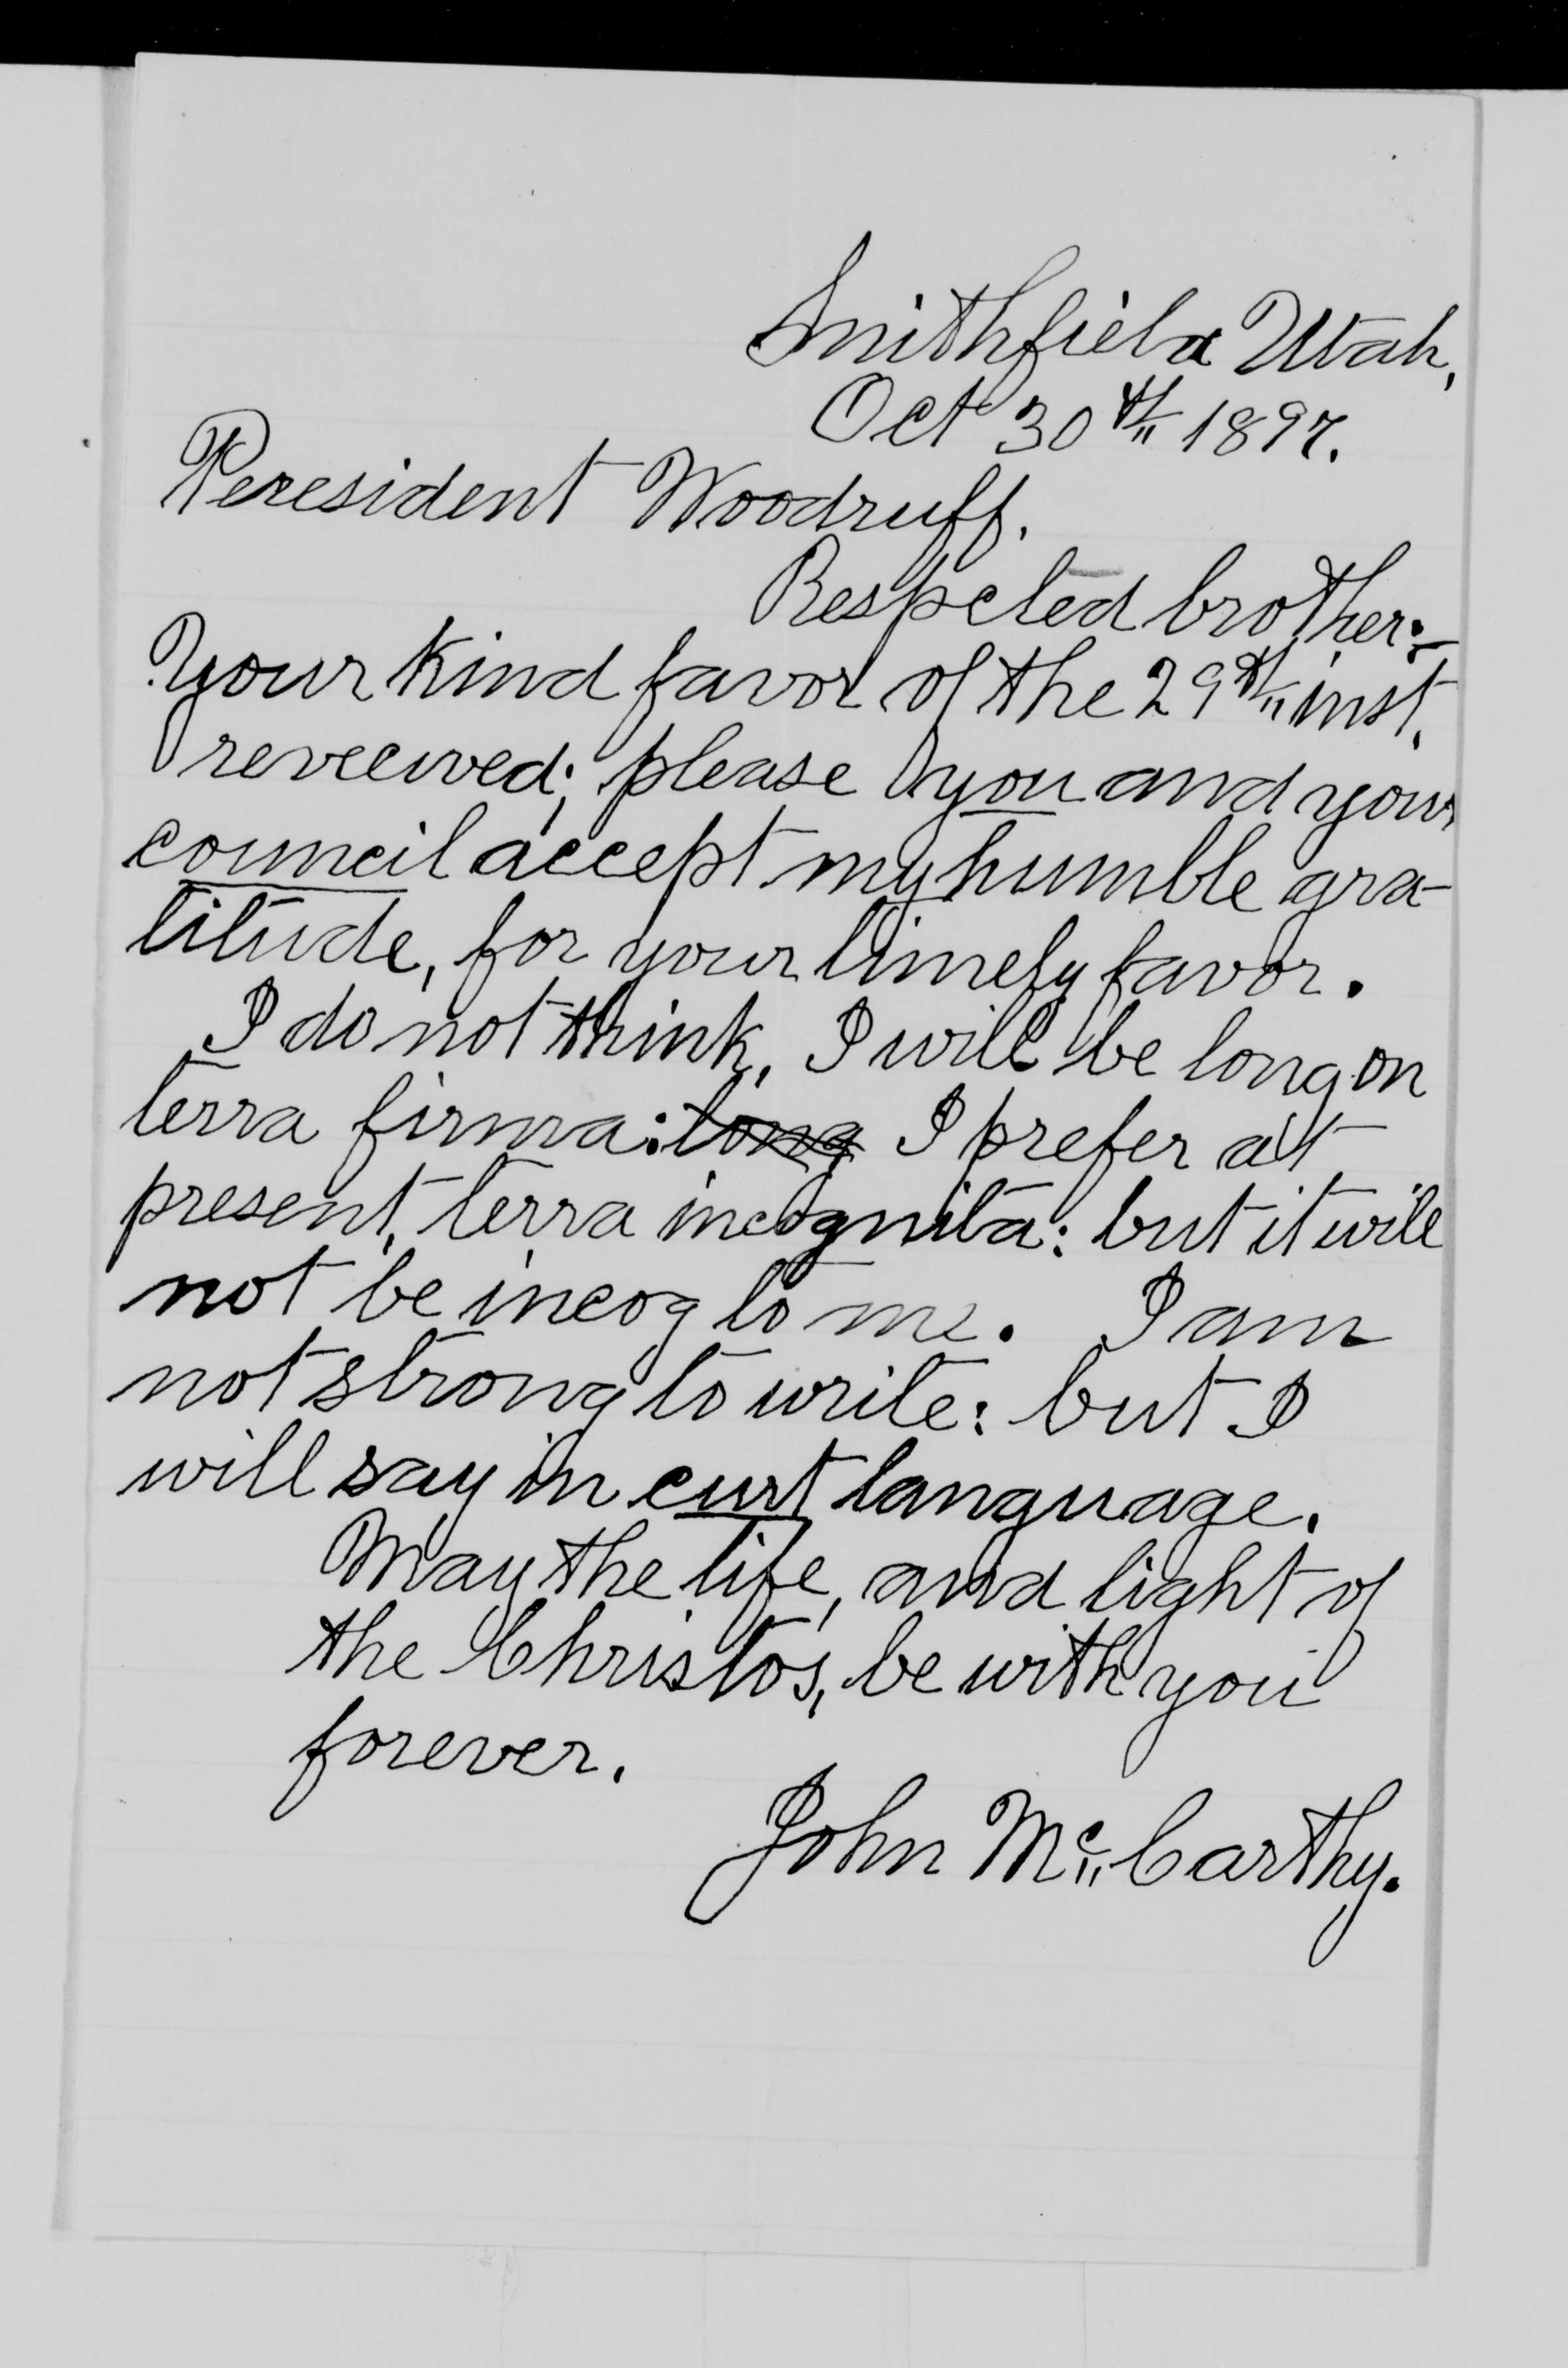 Smithfield Utah,
Oct 30th 1897.
Peresident Woodruff.
Respcted brother:-
Your kind favor of the 29th inst.
reveeived; please you and your
council accept my humble gra-
titude, for your timely favor.
I do not think, I will be long on
terra firma: long I prefer at
present, terra incognita: but it will
not be incog to me. I am
not strong to write: but I
will say in curt language.
May the life, and light of
the Christos, be with you
forever.
John Mc Carthy.